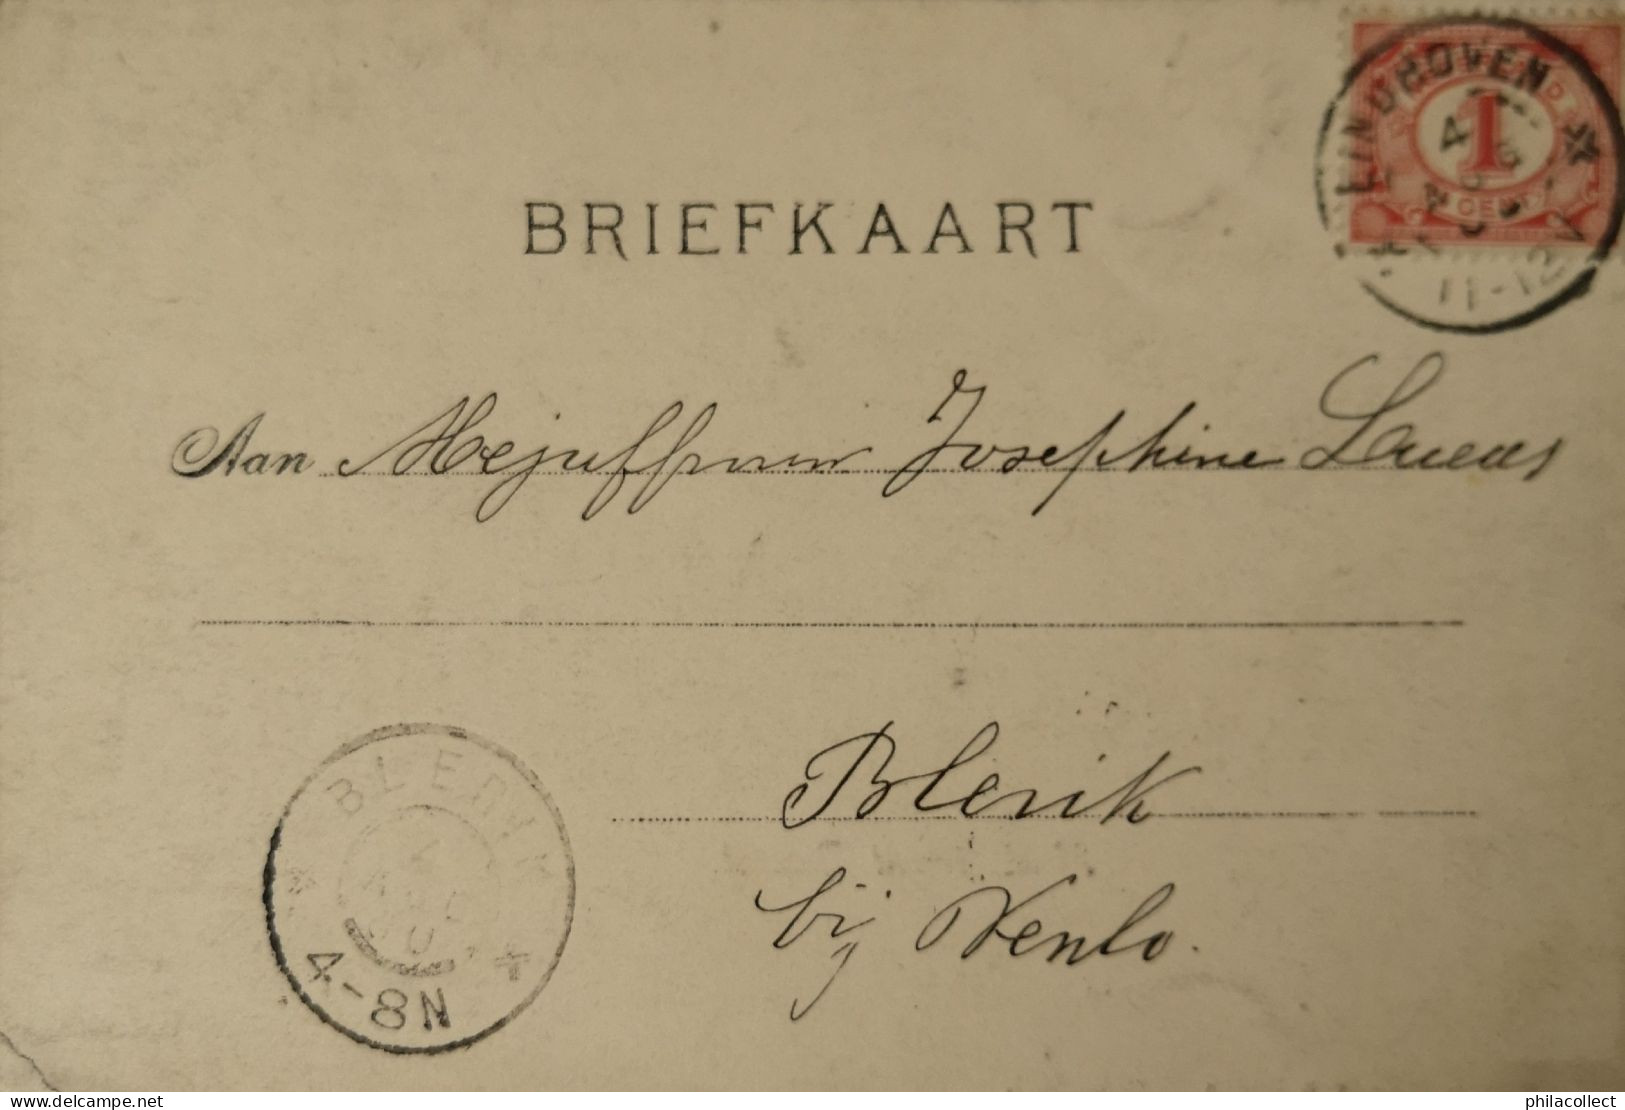 EINDHOVEN
4
1
CENT
11-12V
BRIEFKAART
Aan Mejuffrouw Josephine Lucas
Blerik
bij Venlo.
BLERIK
4
4-8N
delcampe.net
philacollect